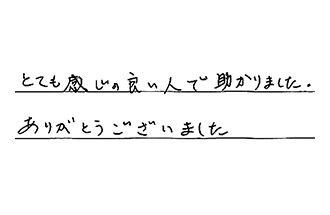 とても感じの良い人で助かりました.
ありがとうございました